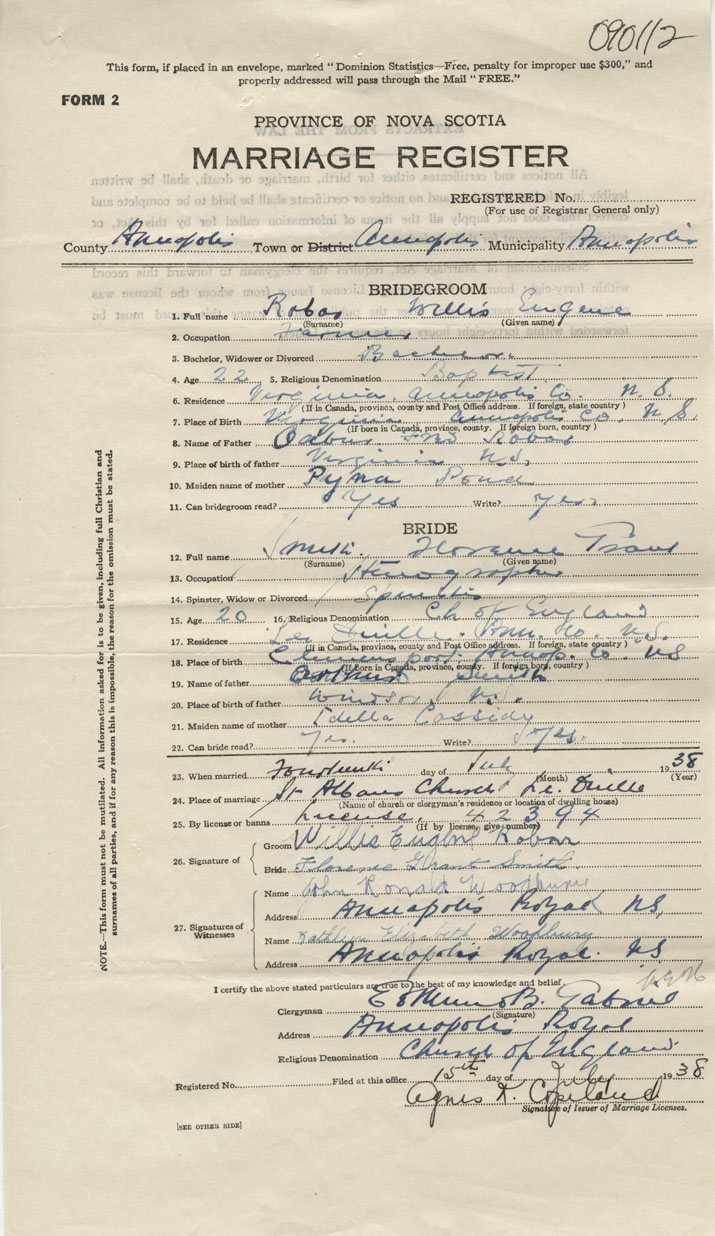 090112
This form, if placed in an envelope, marked "Dominion Statistics—Free, penalty for improper use $300," and
properly addressed will pass through the Mail "FREE."
FORM 2
PROVINCE OF NOVA SCOTIA
MARRIAGE REGISTER
REGISTERED No.
(For use of Registrar General only)
County Annapolis Town or District Annapolis Municipality Annapolis
BRIDEGROOM
1. Full name Robar Willis Eugene
(Surname) (Given name)
2. Occupation Farmer
3. Bachelor, Widower or Divorced Bachelor.
4. Age 22 5. Religious Denomination Baptist
6. Residence Virginia, Annapolis Co. N. S.
(If in Canada, province, county and Post Office address. If foreign, state country)
7. Place of Birth Virginia Annapolis Co. N. S.
(If born in Canada, province, county. If foreign born, country)
8. Name of Father Robar
9. Place of birth of father Virginia N.S.
10. Maiden name of mother Pond
11. Can bridegroom read? Yes Write? Yes
BRIDE
12. Full name Smith. Florence Grant
(Surname) (Given name)
13. Occupation Stenographer
14. Spinster, Widow or Divorced Spinster
15. Age 20 16. Religious Denomination Ch of England
17. Residence Le Quille. Ann. Co. N.S.
(If in Canada, province, county and Post Office address. If foreign, state country)
18. Place of birth Clementsport Annap. Co. NS
(If Born in Canada, province, county. If foreign born, country)
19. Name of father Arthur Smith
20. Place of birth of father Windsor, N.S.
21. Maiden name of mother Idella Cassidy
22. Can bride read? Yes. Write? Yes.
23. When married Fourteenth day of July 1938
(Month) (Year)
24. Place of marriage St Albans Church Le Quille
(Name of church or clergyman's residence or location of dwelling house)
25. By license or banns License, 42394
(If by license, give number)
26. Signature of Groom Willis Eugene Robar
Bride Florence Grant Smith
27. Signatures of Witnesses
Name John Ronald Woodbury
Address Annapolis Royal NS,
Name Kathlyn Elizabeth Woodbury
Address Annapolis Royal. NS
I certify the above stated particulars are true to the best of my knowledge and belief.
Clergyman B. Gabriel
(Signature)
Address Annapolis Royal
Religious Denomination Church of England
Registered No. Filed at this office 15th day of July 1938
Agnes K. Copeland
Signature of Issuer of Marriage Licenses.
[SEE OTHER SIDE]
NOTE.—This form must not be mutilated. All information asked for is to be given, including full Christian and
surnames of all parties, and if for any reason this is impossible, the reason for the omission must be stated.